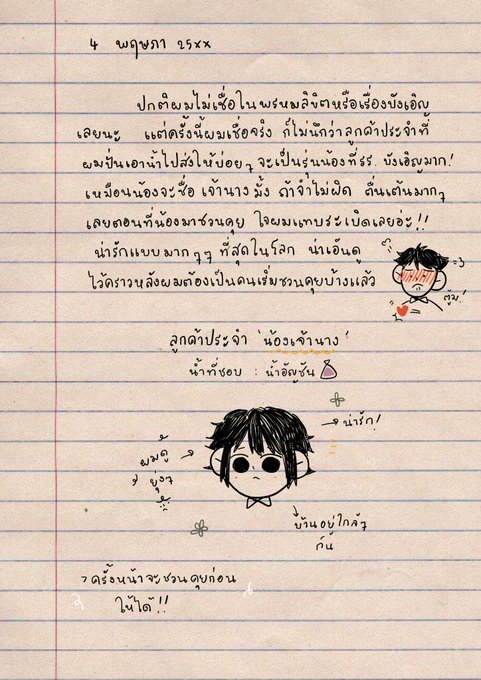 4 พฤษภา 25xx
ปกติผมไม่เชื่อในพรหมลิขิตหรือเรื่องบังเอิญ
เลยนะ แต่ครั้งนี้ผมเชื่อจริง ก็ไม่นึกว่าลูกค้าประจำที่
ผมปั่นเอาน้ำไปส่งให้บ่อยๆ จะเป็นรุ่นน้องที่รร. บังเอิญมาก!
เหมือนน้องจะชื่อ เจ้านาง มั้ง ถ้าจำไม่ผิด ตื่นเต้นมากๆ
เลยตอนที่น้องมาชวนคุย ใจผมแทบระเบิดเลยอ่ะ!!
น่ารักแบบมากๆๆ ที่สุดในโลก น่าเอ็นดู
ไว้คราวหลังผมต้องเป็นคนเริ่มชวนคุยบ้างแล้ว
ตู้ม!
ลูกค้าประจำ 'น้องเจ้านาง'
น้ำที่ชอบ : น้ำอัญชัน
น่ารัก!
ผมดู
ยุ่งๆ
บ้านอยู่ใกล้ๆ
กัน
>ครั้งหน้าจะชวนคุยก่อน
ให้ได้!!